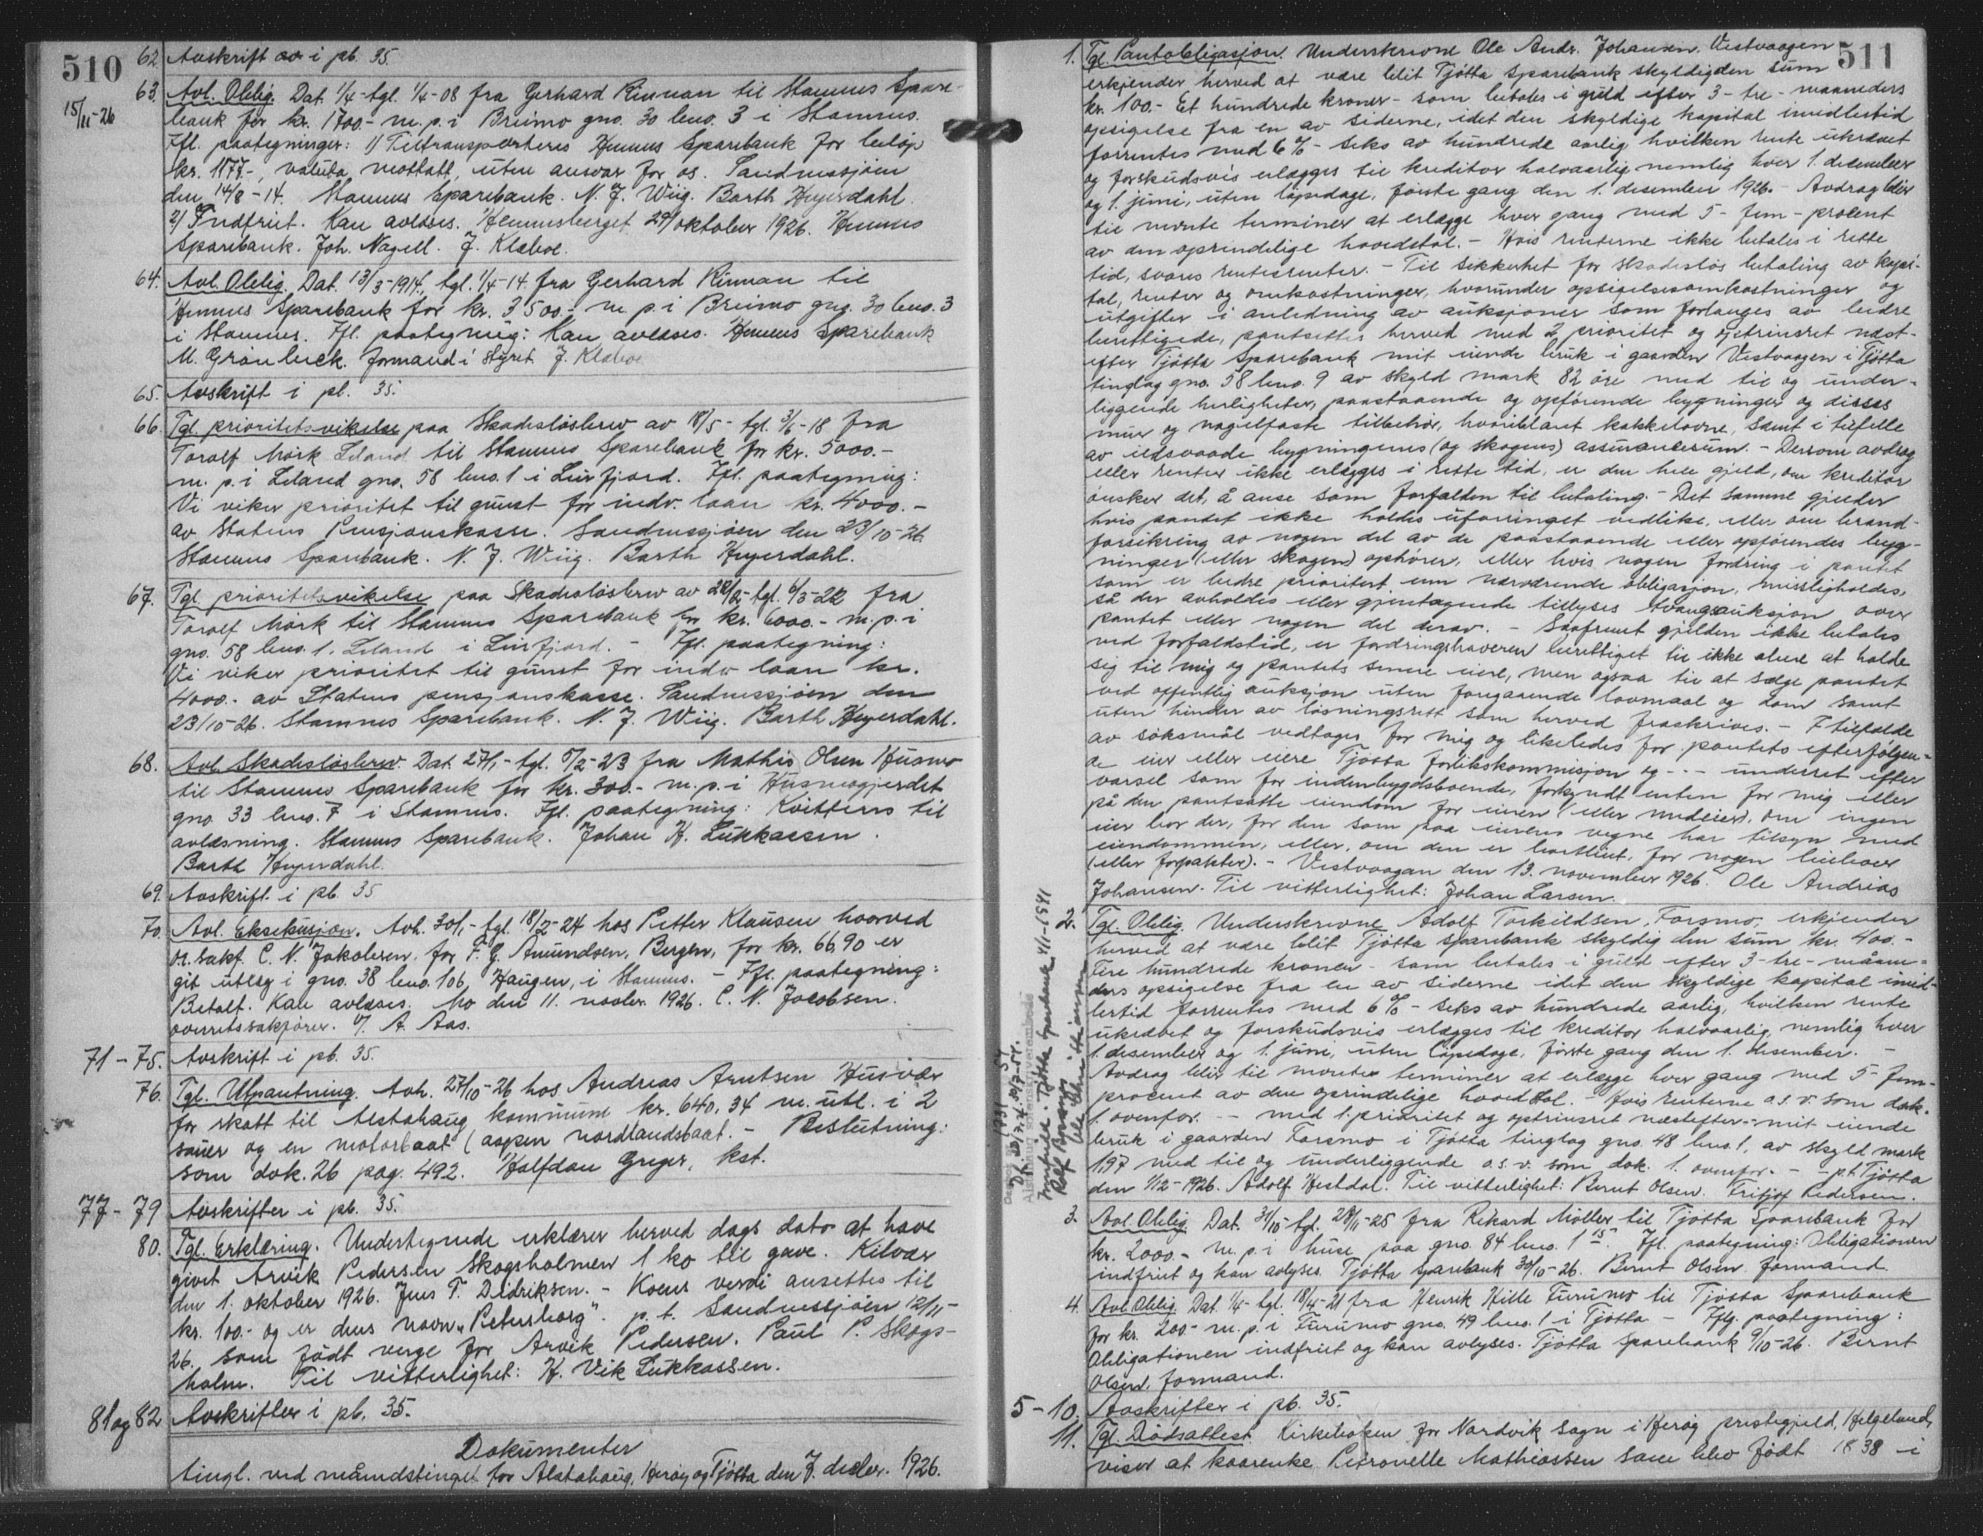 510
62. Avskrift av i pb. 35.
15/11-26
63. Avl. Oblig. Dat. 1/4- tgl. 1/4-08 fra Gerhard Rinnan til Stamnes Spare-
bank for kr. 1700.- m. p. i Breimo gno. 30 bno. 3 i Stamnes.
Ifl. paategninger: 1/ Tiltransporteres Hemnes Sparebank for beløp
kr. 1177.-, valuta mottatt, uten ansvar for os. Sandnessjøen
den 14/8-14. Stamnes Sparebank. N. J. Wiig. Barth Heyerdahl.
2/ Indfriet. Kan avløses. Hemnesberget 29/oktober 1926. Hemnes
Sparebank. Joh. Nagell. J. Klæboe.
64. Avl. Oblig. Dat. 13/3-1914, tgl. 1/4-14 fra Gerhard Rinnan til
Hemnes Sparebank for kr. 3500.- m. p. i Breimo gno. 30 bno. 3
i Stamnes. Ifl. paategning: Kan avløses. Hemnes Sparebank
M. Grønbeck. formand i styret J. Klæboe
65. Avskrift i pb. 35.
66. Tgl. prioritetsvikelse paa Skadesløsbrev av 18/5- tgl. 3/6-18 fra
Torolf Mørk Leland til Stamnes Sparebank for kr. 5000.-
m. p. i Leland gno. 58 bno. 1 i Leirfjord. Ifl. paategning:
Vi viker prioritet til gunst for indv. laan kr. 4000.-
av Statens Pensjonskasse. Sandnessjøen den 23/10-26
Stamnes Sparebank. N. J. Wiig. Barth Heyerdahl.
67. Tgl. prioritetsvikelse paa Skadesløsbrev av 28/2- tgl. 6/3-22 fra
Torolf Mørk til Stamnes Sparebank for kr. 6000.- m. p. i
gno. 58 bno. 1. Leland i Leirfjord. - Ifl. paategning:
Vi viker prioritet til gunst for indv laan kr.
4000.- av Statens pensjonskasse. Sandnessjøen den
23/10-26. Stamnes Sparebank. N. J. Wiig. Barth Heyerdahl.
68. Avl. Skadesløsbrev. Dat. 27/1,- tgl. 5/2-23 fra Mathis Olsen Husmo
til Stamnes Sparebank for kr. 300.- m. p. i Husmogjerdet
gno. 33 bno. 7 i Stamnes. Ifl. paategning: Kvitteres til
avlæsning. Stamnes Sparebank. Johan H. Lukkassen.
Barth Heyerdahl.
69. Avskrift i pb. 35
70. Avl. Eksekusjon. Avh. 30/1,- tgl. 18/2-24 hos Petter Klausen hvorved
or. sakf. C. N. Jakobsen. for F. G. Amundsen, Bergen, for kr. 66.90 er
git utlæg i gno. 38 bno. 106, Haugen, i Stamnes. - Ifl. paategning:
Betalt. Kan avløses. Mo den 11. novbr. 1926. C. N. Jacobsen.
overretssakfører. v/ A. Aas.
71 - 75. Avskrift i pb. 35.
76. Tgl. Utpantning. Avh. 27/10-26 hos Andreas Arntsen Husvær
for skatt til Alstahaug kommune kr. 640,34 m. utl. i 2
sauer og en motorbaat (aapen nordlandsbaat. - Beslutning:
som dok. 26 pag. 492. Halfdan Greger, kst.
77 - 79 Avskrifter i pb. 35.
80. Tgl. Erklæring. Undertegnede erklærer herved dags dato at have
givet Arvik Pedersen Skogsholmen 1 ko til gave. Kilvær
den 1. oktober 1926. Jens T. Didriksen. - Koens verdi ansettes til
kr. 100.- og er dens navn „Petersborg". p. t. Sandnessjøen 12/11-
26. som født verge for Arvik Pedersen. Paul P. Skogs-
holm. Til vitterlighet: H. Vik Lukkassen.
81 og 82 Avskrifter i pb. 35.
Dokumenter
tingl. ved maanedstinget for Alstahaug, Herøy og Tjøtta den 7. decbr. 1926.
511
1. Tgl. Pantobligasjon. Underskrevne Ole Andr. Johansen, Vestvaagen
erkjender herved at være blit Tjøtta Sparebank skyldig den sum
kr. 100.- Et hundrede kroner- som betales i guld efter 3 - tre - maaneders
opsigelse fra en av siderne, idet den skyldige kapital imidlertid
forrentes med 6 % - seks av hundrede aarlig hvilken rente ukrævet
og forskudsvis erlægges til kreditor halvaarlig nemlig hver 1. desember
og 1. juni, uten løpedage, første gang den 1. desember 1926.- Avdrag blir
til nævnte terminer at erlægge hver gang med 5 - fem - procent
av den oprindelige hovedstol. - Hvis renterne ikke betales i rette
tid, svares rentesrenter. - Til sikkerhet for skadesløs betaling av kapi-
tal, renter og omkostninger, hvorunder opsigelsesomkostninger og
utgifter i anledning av auksjoner som forlanges av bedre
berettigede, pantsettes herved med 2 prioritet og optrinsret næst-
efter Tjøtta Sparebank mit eiende bruk i gaarden Vestvaagen i Tjøtta
tinglag gno. 58 bno. 9 av skyld mark 82 øre med til og under-
liggende herligheter, paastaaende og opførende bygninger og disses
mur og nagelfaste tilbehør, hvoriblant kakkelovne, samt i tilfelle
av ildsvaade bygningenes (og skogens) assurancesum. - Dersom avdrag
eller renter ikke erlægges i rette tid, er den hele gjeld, om kreditor
ønsker det, å anse som forfalden til betaling. - Det samme gjelder
hvis pantet ikke holdes uforringet vedlike, eller om brand-
forsikring av nogen del av de paastaaende eller opførendes byg-
ninger (eller skogen) ophører, eller hvis nogen fordring i pantet
som er bedre prioritert enn nærværende obligasjon, misligholdes,
så der avholdes eller gjentagende tillyses tvangsauksjon over
pantet eller nogen del derav. - Saafremt gjelden ikke betales
ved forfaldstid, er fordringshaveren berettiget til ikke alene at holde
sig til mig og pantets senere eiere, men ogsaa til at sælge pantet
ved offentlig auksjon uten forgaaende lovmaal og dom samt
uten hinder av løsningsrett som herved fraskrives. - I tilfælde
av søksmål vedtages for mig og likeledes for pantets efterfølgen-
de eier eller eiere Tjøtta forlikskommisjon og - - - underret efter
varsel som for indenbygdsboende, forkyndt enten for mig eller
på den pantsatte eiendom for eieren (eller medeier), om ingen
eier bor der, for den som paa eierens vegne har tilsyn med
eiendommen, eller, om den er bortleiet, for nogen leieboer
(eller forpakter). - Vestvaagan den 13. november 1926. Ole Andreas
Johansen. Til vitterlighet: Johan Larsen.
2. Tgl. Oblig. Underskrevne Adolf Torkildsen, Forsmo, erkjender
herved at være blit Tjøtta Sparebank skyldig den sum kr. 400.-
Fire hundrede kroner - som betales i guld efter 3 - tre - måane-
ders opsigelse fra en av siderne idet den skyldige kapital imid-
lertid forrentes med 6 % - seks av hundrede aarlig, hvilken rente
ukrævet og forskudsvis erlægges til kreditor halvaarlig, nemlig hver
1. desember og 1. juni, uten løpedage, første gang den 1. desember. -
Avdrag blir til nævnte terminer at erlægge hver gang med 5 - fem-
procent av den oprindelige hovedstol. - Hvis renterne o.s.v. som dok.
1. ovenfor. - - med 1. prioritet og optrinsret næstefter - - mit eiende
bruk i gaarden Forsmo i Tjøtta tinglag gno. 48 bno. 1, av skyld mark
1,97 med til og underliggende o.s.v. som dok. 1. ovenfor. - - p.t. Tjøtta
den 1/12-1926. Adolf Hestdal. Til vitterlighet: Bernt Olsen. Fritjof Pedersen.
3. Avl. Oblig. Dat. 31/10- tgl. 28/11-25 fra Rikard Møller til Tjøtta Sparebank for
kr. 2000.- m. p. i huse paa gno. 84 bno. 1 15. Ifl. paategning: Obligationen
indfriet og kan avlyses. Tjøtta Sparebank 30/10-26. Bernt Olsen. formand.
4. Avl. Oblig. Dat. 1/4- tgl. 18/4-21 fra Henrik Hille Furumo til Tjøtta Sparebank
for kr. 200.- m. p. i Furumo gno. 49 bno. 1 i Tjøtta - Iflg. paategning:
Obligationen indfriet og kan avlyses. Tjøtta Sparebank 9/10-26. Bernt
Olsen, formand.
5 - 10. Avskrifter i pb. 35.
11. Tgl. Dødsattest. Kirkeboken for Nordvik sogn i Herøy prestegjeld, Helgeland,
viser at kaarenke Pernelle Mathiassen som blev født 1838 i